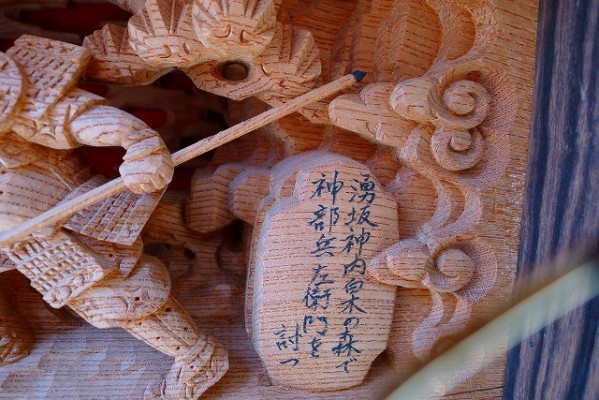 湧坂神内白木の森で
神部兵左衛門を
討つ